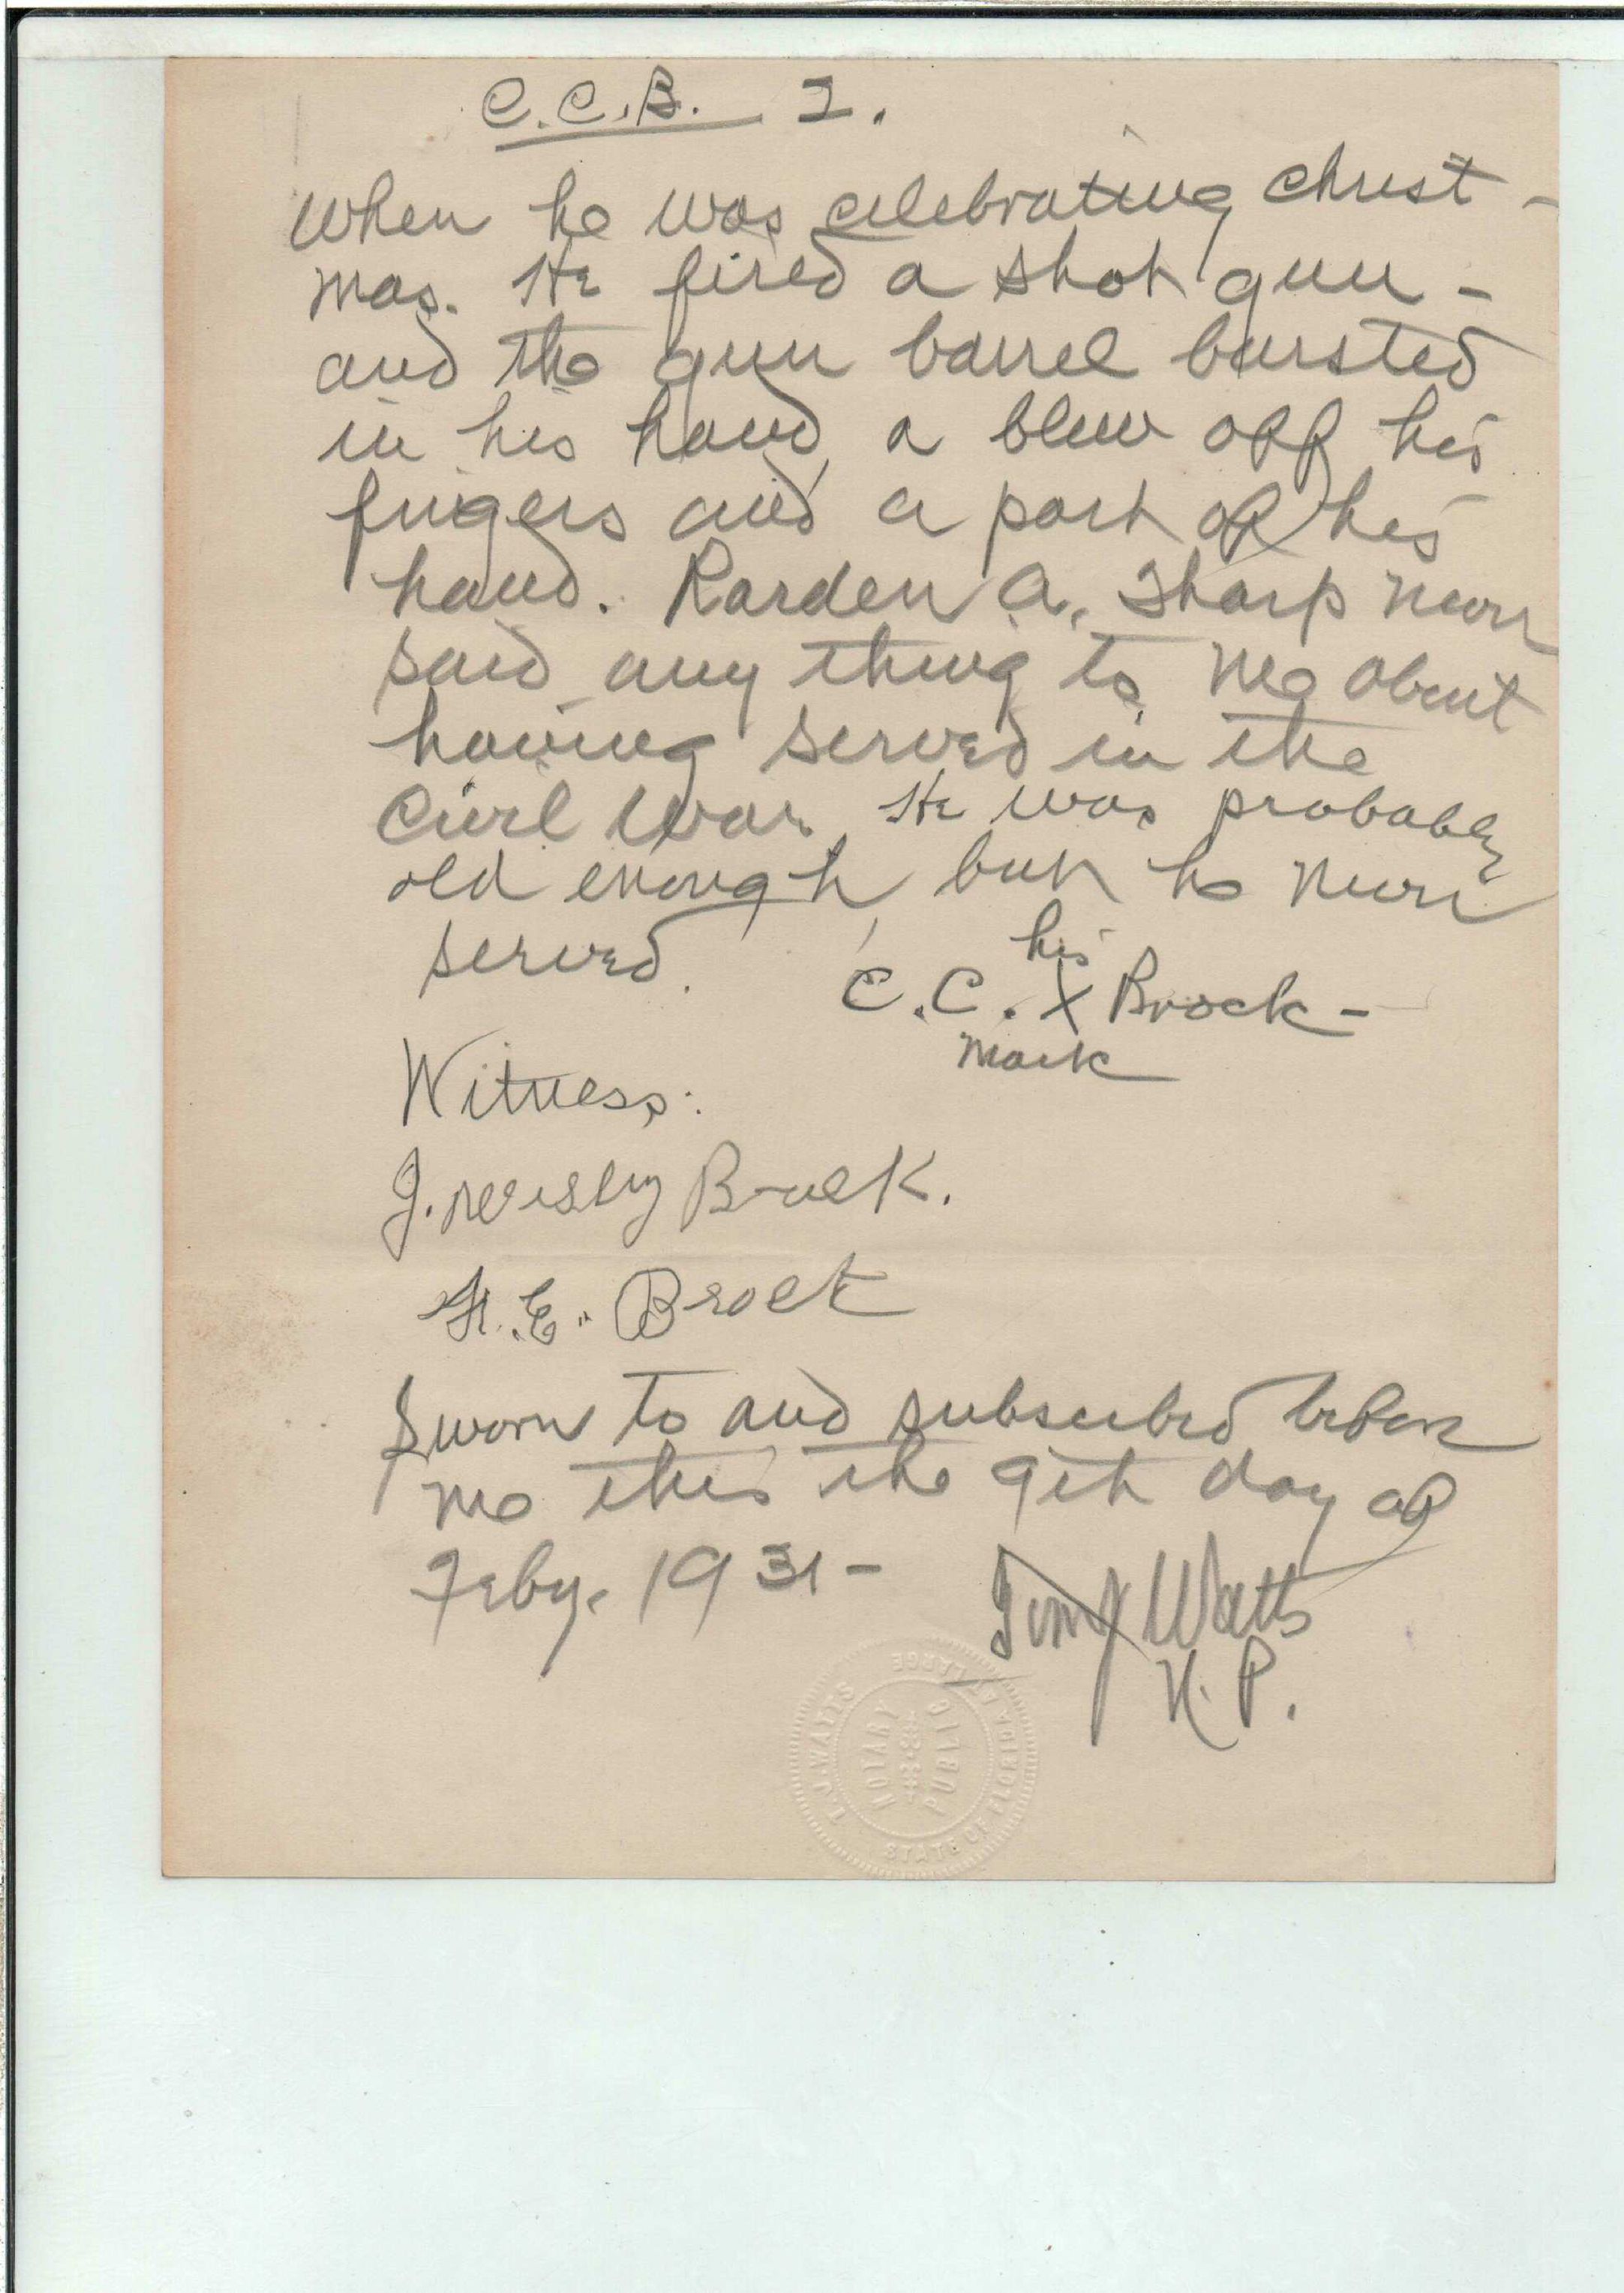 C.C.B. 2.
When he was celebrating Christ-
mas. He fired a shot gun -
and the gun barrel bursted
in his hand, a blew off his
fingers and a part of his
hand. Rarden A. Sharp never
said any thing to me about
having served in the
Civil War. He was probably
old enough, but he never
served.
his
C.C. X Brock -
mark
Witness:
J. Wesley Brock.
H. E. Brock
Sworn to and subscribed before
me this the 9th day of
Feby. 1931 -
Tim J Watts
N. P.
T. J. WATTS
NOTARY PUBLIC
STATE OF FLORIDA AT LARGE